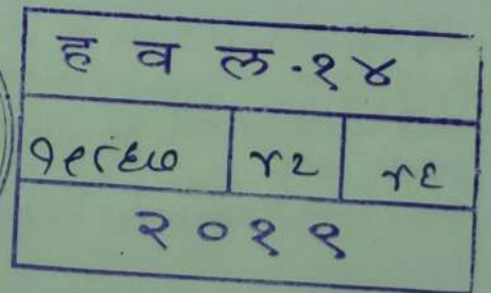 ह व ल-१४
१९८६७ ४२ ४६
२०१९